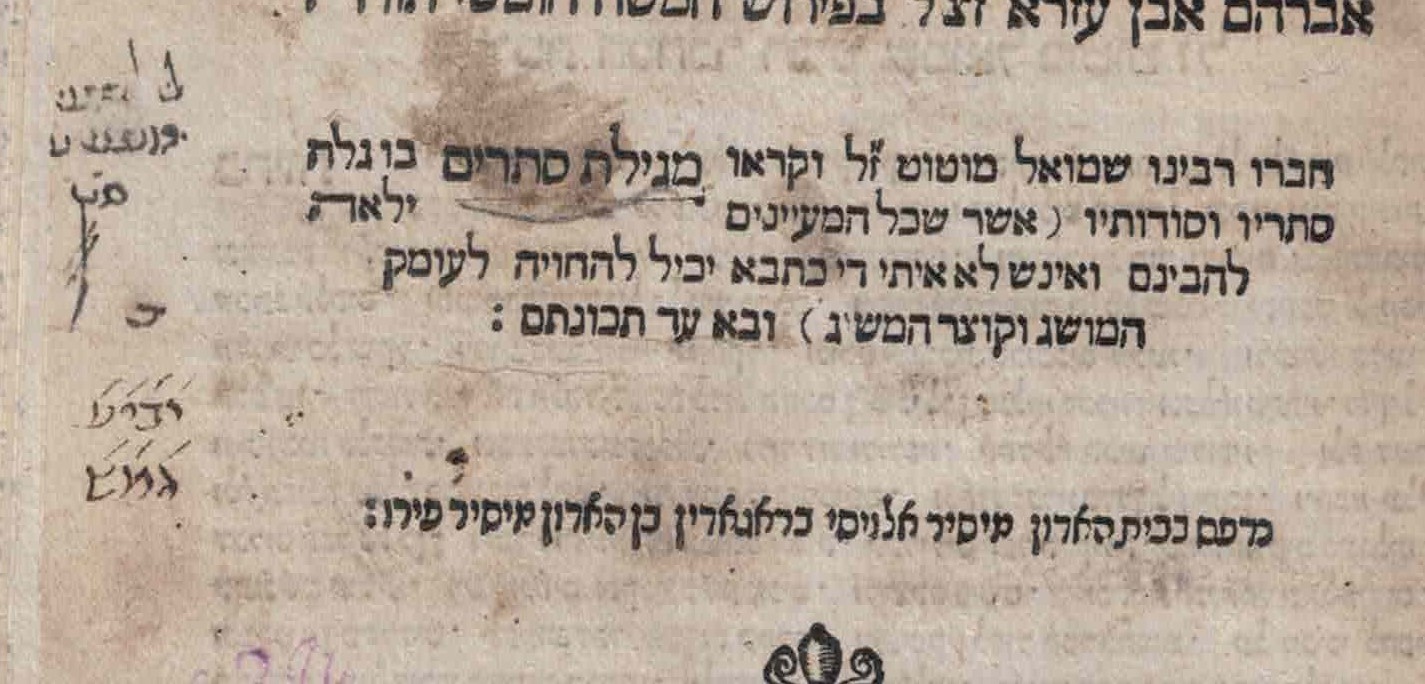 אברהם אבן עזרא זצ"ל בפירוש חמשה חומשי תורה
חברו רבינו שמואל מוטוט ז"ל וקראו מגילת סתרים בו גלה
סתריו וסודותיו (אשר שכל המעיינים ילאה
להבינם ואינש לא איתי די כתבא יכיל להחויה לעומק
המושג וקוצר המשיג) ובא עד תכונתם :
נדפס בבית האדון מיסיר אלויסי בראגאדין בן האדון מיסיר פירו :